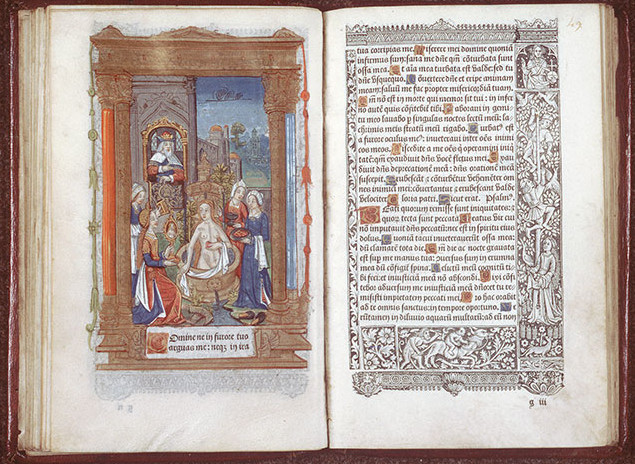 Domine ne in furore tuo
arguas me: neqꝫ in ira
tua corripias me. Miserere mei domine quoniā
infirmus sum: sana me dn̄e qm̄ cōturbata sunt
ossa mea. Et aīa mea turbata est valde: sed tu
dn̄e usquequo. Cōvertere dn̄e et eripe animam
meam: salvum me fac propter misericordiā tuam.
Qm̄ nō est in morte qui memor sit tui: in infer
no autē quis cōfitebit tibi. Laboravi in gemi
tu meo lavabo p singulas noctes lectū meū: la
chrimis meis stratū meū rigabo. Turbat᷒ est
a furore oculus me᷒: inveteravi inter oēs inimi
cos meos. Discedite a me oēs q̄ operamini ini
tatē: qm̄ exaudivit dn̄s vocē fletus mei. Exau
divit dn̄s deprecationē meā: dn̄s orationē meā
suscepit. Erubescāt ⁊ cōturbēt᷑ vehementer om
nes inimici mei: cōvertant᷑ ⁊ erubescant valde
velociter. Gloria patri. Sicut erat. Psalm᷒.
Beati quorum remisse sunt iniquitates: ⁊
quoꝝ tecta sunt peccata. Beatus vir cui
nō imputavit dn̄s peccatū: nec est in spiritu eius
dolus. Quoniā tacui inveteraverūt ossa mea:
dū clamarē tota die. Qm̄ die ac nocte gravata
est sup me manus tua: cōversus sum in erumna
mea dū cōfigit̄ spina. Delictū meū cognitū ti
bi feci: et iniusticiā meā nō abscondi. Dixi cōfi
tebor adversum me iniusticiā meā dn̄o: et tu re
misisti impietatem peccati mei. Pro hac orabit
ad te omnis sanctus: in tempore oportuno. Ve
rūtamen in diluvio aquarū multarū: ad eū non
g iii